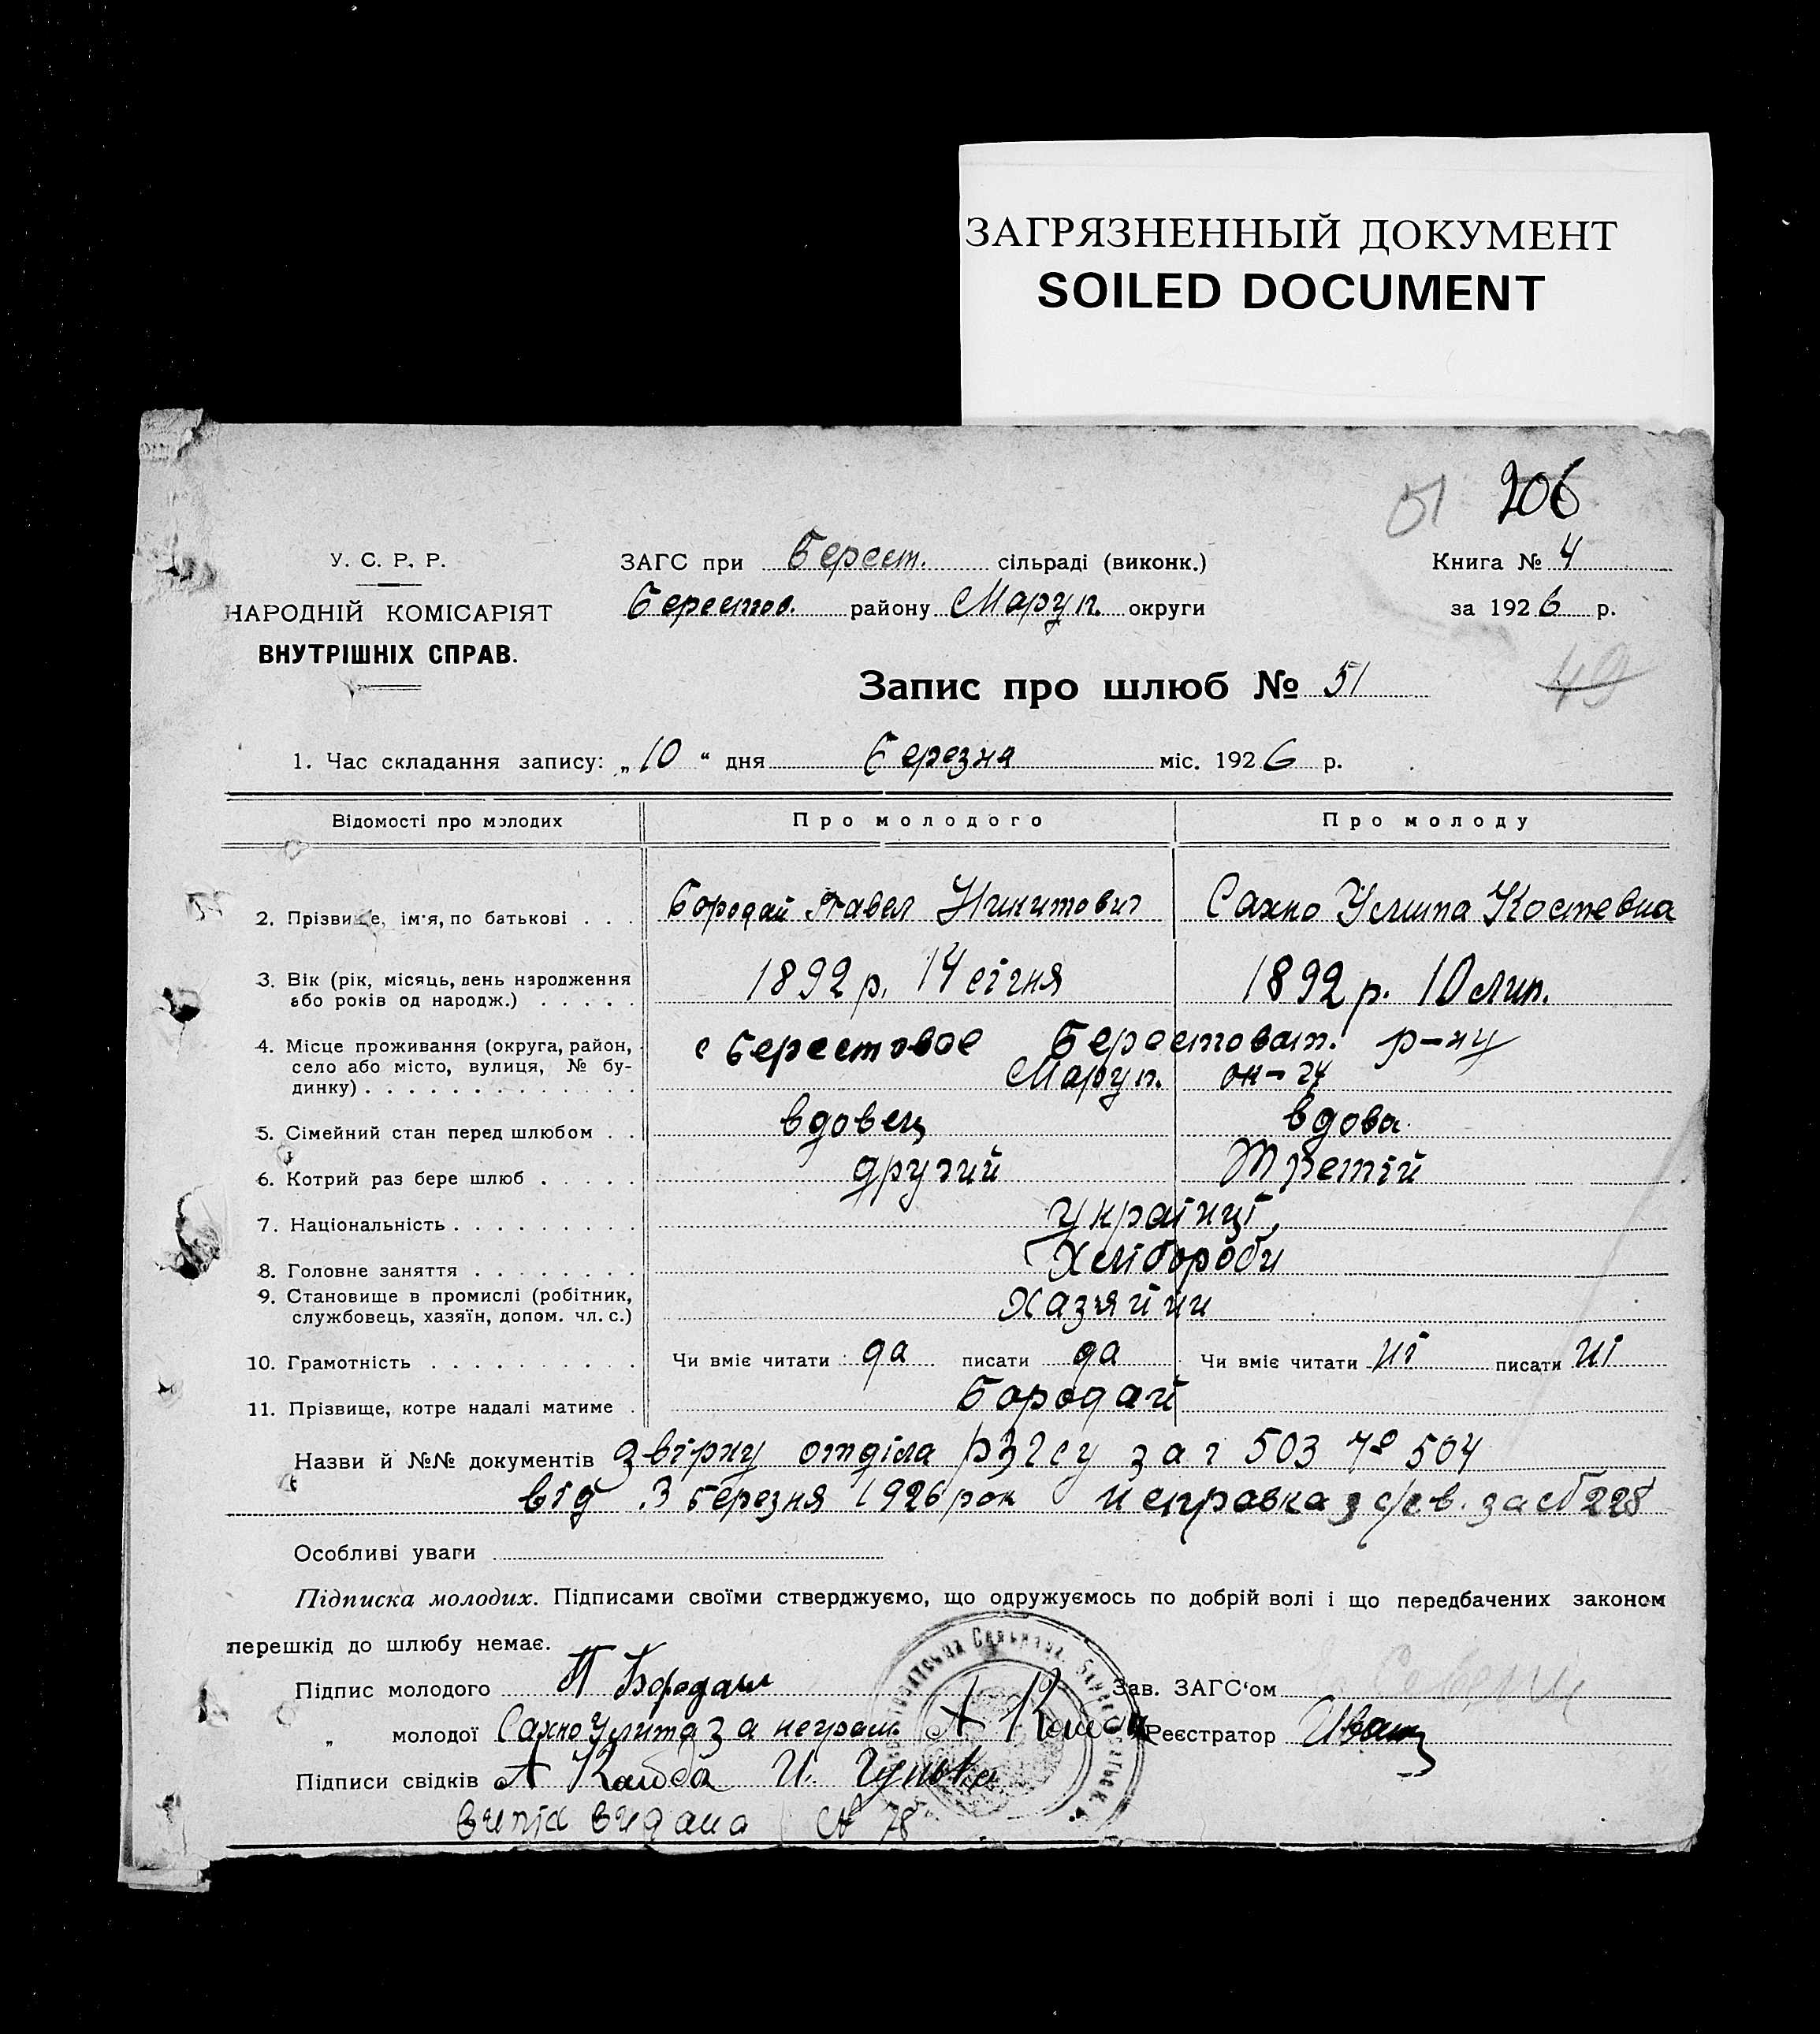 ЗАГРЯЗНЕННЫЙ ДОКУМЕНТ
SOILED DOCUMENT
51 206
У. С. Р. Р.
НАРОДНІЙ КОМІСАРІЯТ
ВНУТРІШНІХ СПРАВ.
ЗАГС при Берест. сільраді (виконк.)
Берестов. району Маруп. округи
Книга № 4
за 1926 р.
49
Запис про шлюб № 51
1. Час складання запису: „10“ дня Березня міс. 1926 р.
Відомості про молодих Про молодого Про молоду
2. Прізвище, ім'я, по батькові . . . Бородай Павел Никитович Сахно Улита Костевна
3. Вік (рік, місяць, день народження або років од народж.) . . . . . 1892 р. 14 січня 1892 р. 10 лип.
4. Місце проживання (округа, район, село або місто, вулиця, № будинку) . . . . . с Берестовое Берестоват. р-ну
Маруп. ок-ги
5. Сімейний стан перед шлюбом . . вдовец вдова
6. Котрий раз бере шлюб . . . . . другий третій
7. Національність . . . . . . . . . українці,
8. Головне заняття . . . . . . . . Хлібороби
9. Становище в промислі (робітник, службовець, хазяїн, допом. чл. с.) Хазяйни
10. Грамотність . . . . . . . . . . Чи вміє читати да писати да Чи вміє читати ні писати ні
11. Прізвище, котре надалі матиме . Бородай
Назви й №№ документів отділа за 503 504
від 3 березня 1926 рок и справка з за № 228
Особливі уваги
Підписка молодих. Підписами своїми стверджуємо, що одружуємось по добрій волі і що передбачених законом
перешкід до шлюбу немає.
Підпис молодого П Бородай
Зав. ЗАГС'ом
„ молодої Сахно Улита за неграм. А
Реєстратор
Підписи свідків А И.
випис видана № 78